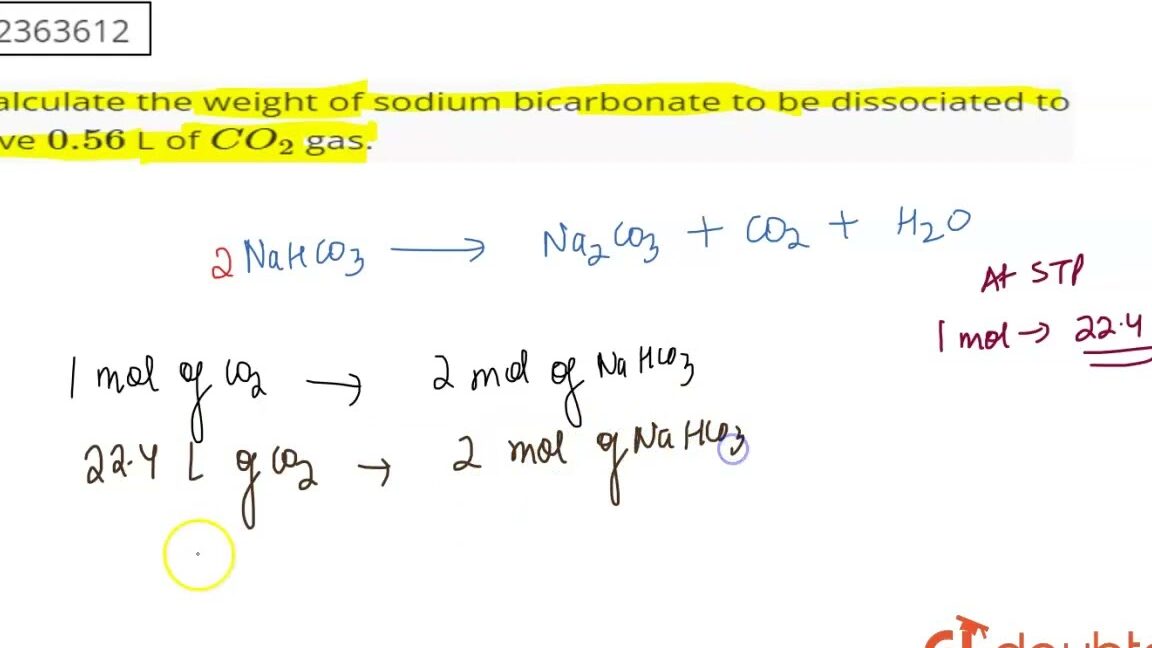 2363612
alculate the weight of sodium bicarbonate to be dissociated to
ve 0.56 L of CO2 gas.
2 NaHCO3 → Na2CO3 + CO2 + H2O
At STP
1 mol → 22.4
1 mol of CO2 → 2 mol of NaHCO3
22.4 L of CO2 → 2 mol of NaHCO3
doubt